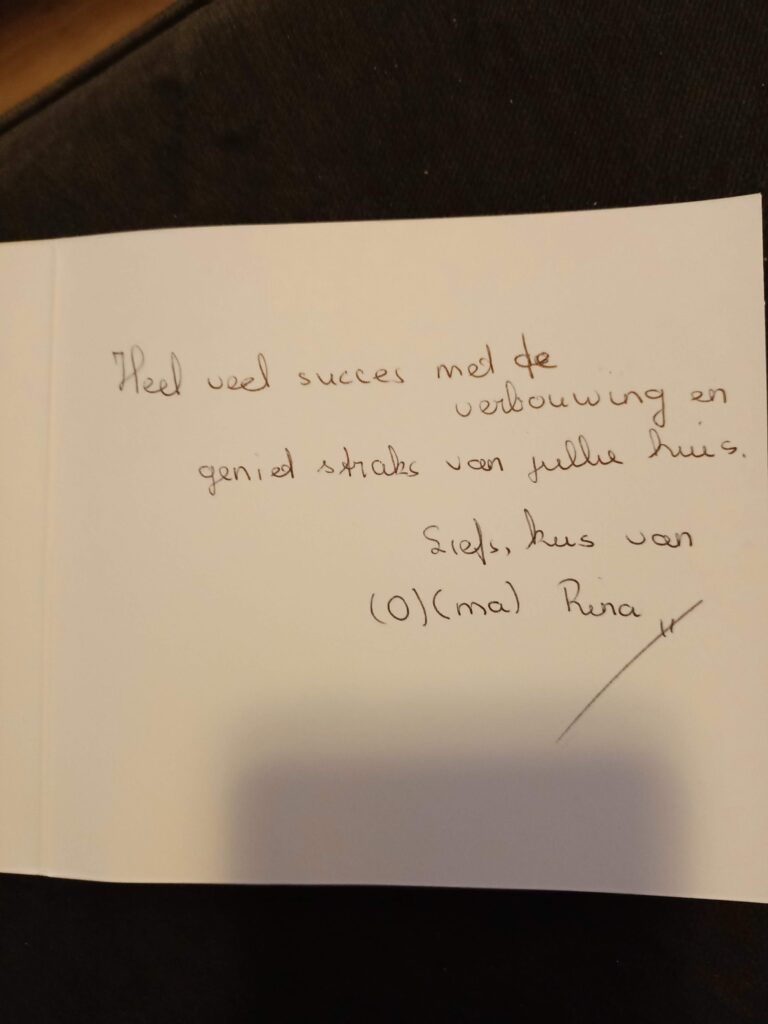 Heel veel succes met de
verbouwing en
geniet straks van jullie huis.
Liefs, kus van
(O)(ma) Rina